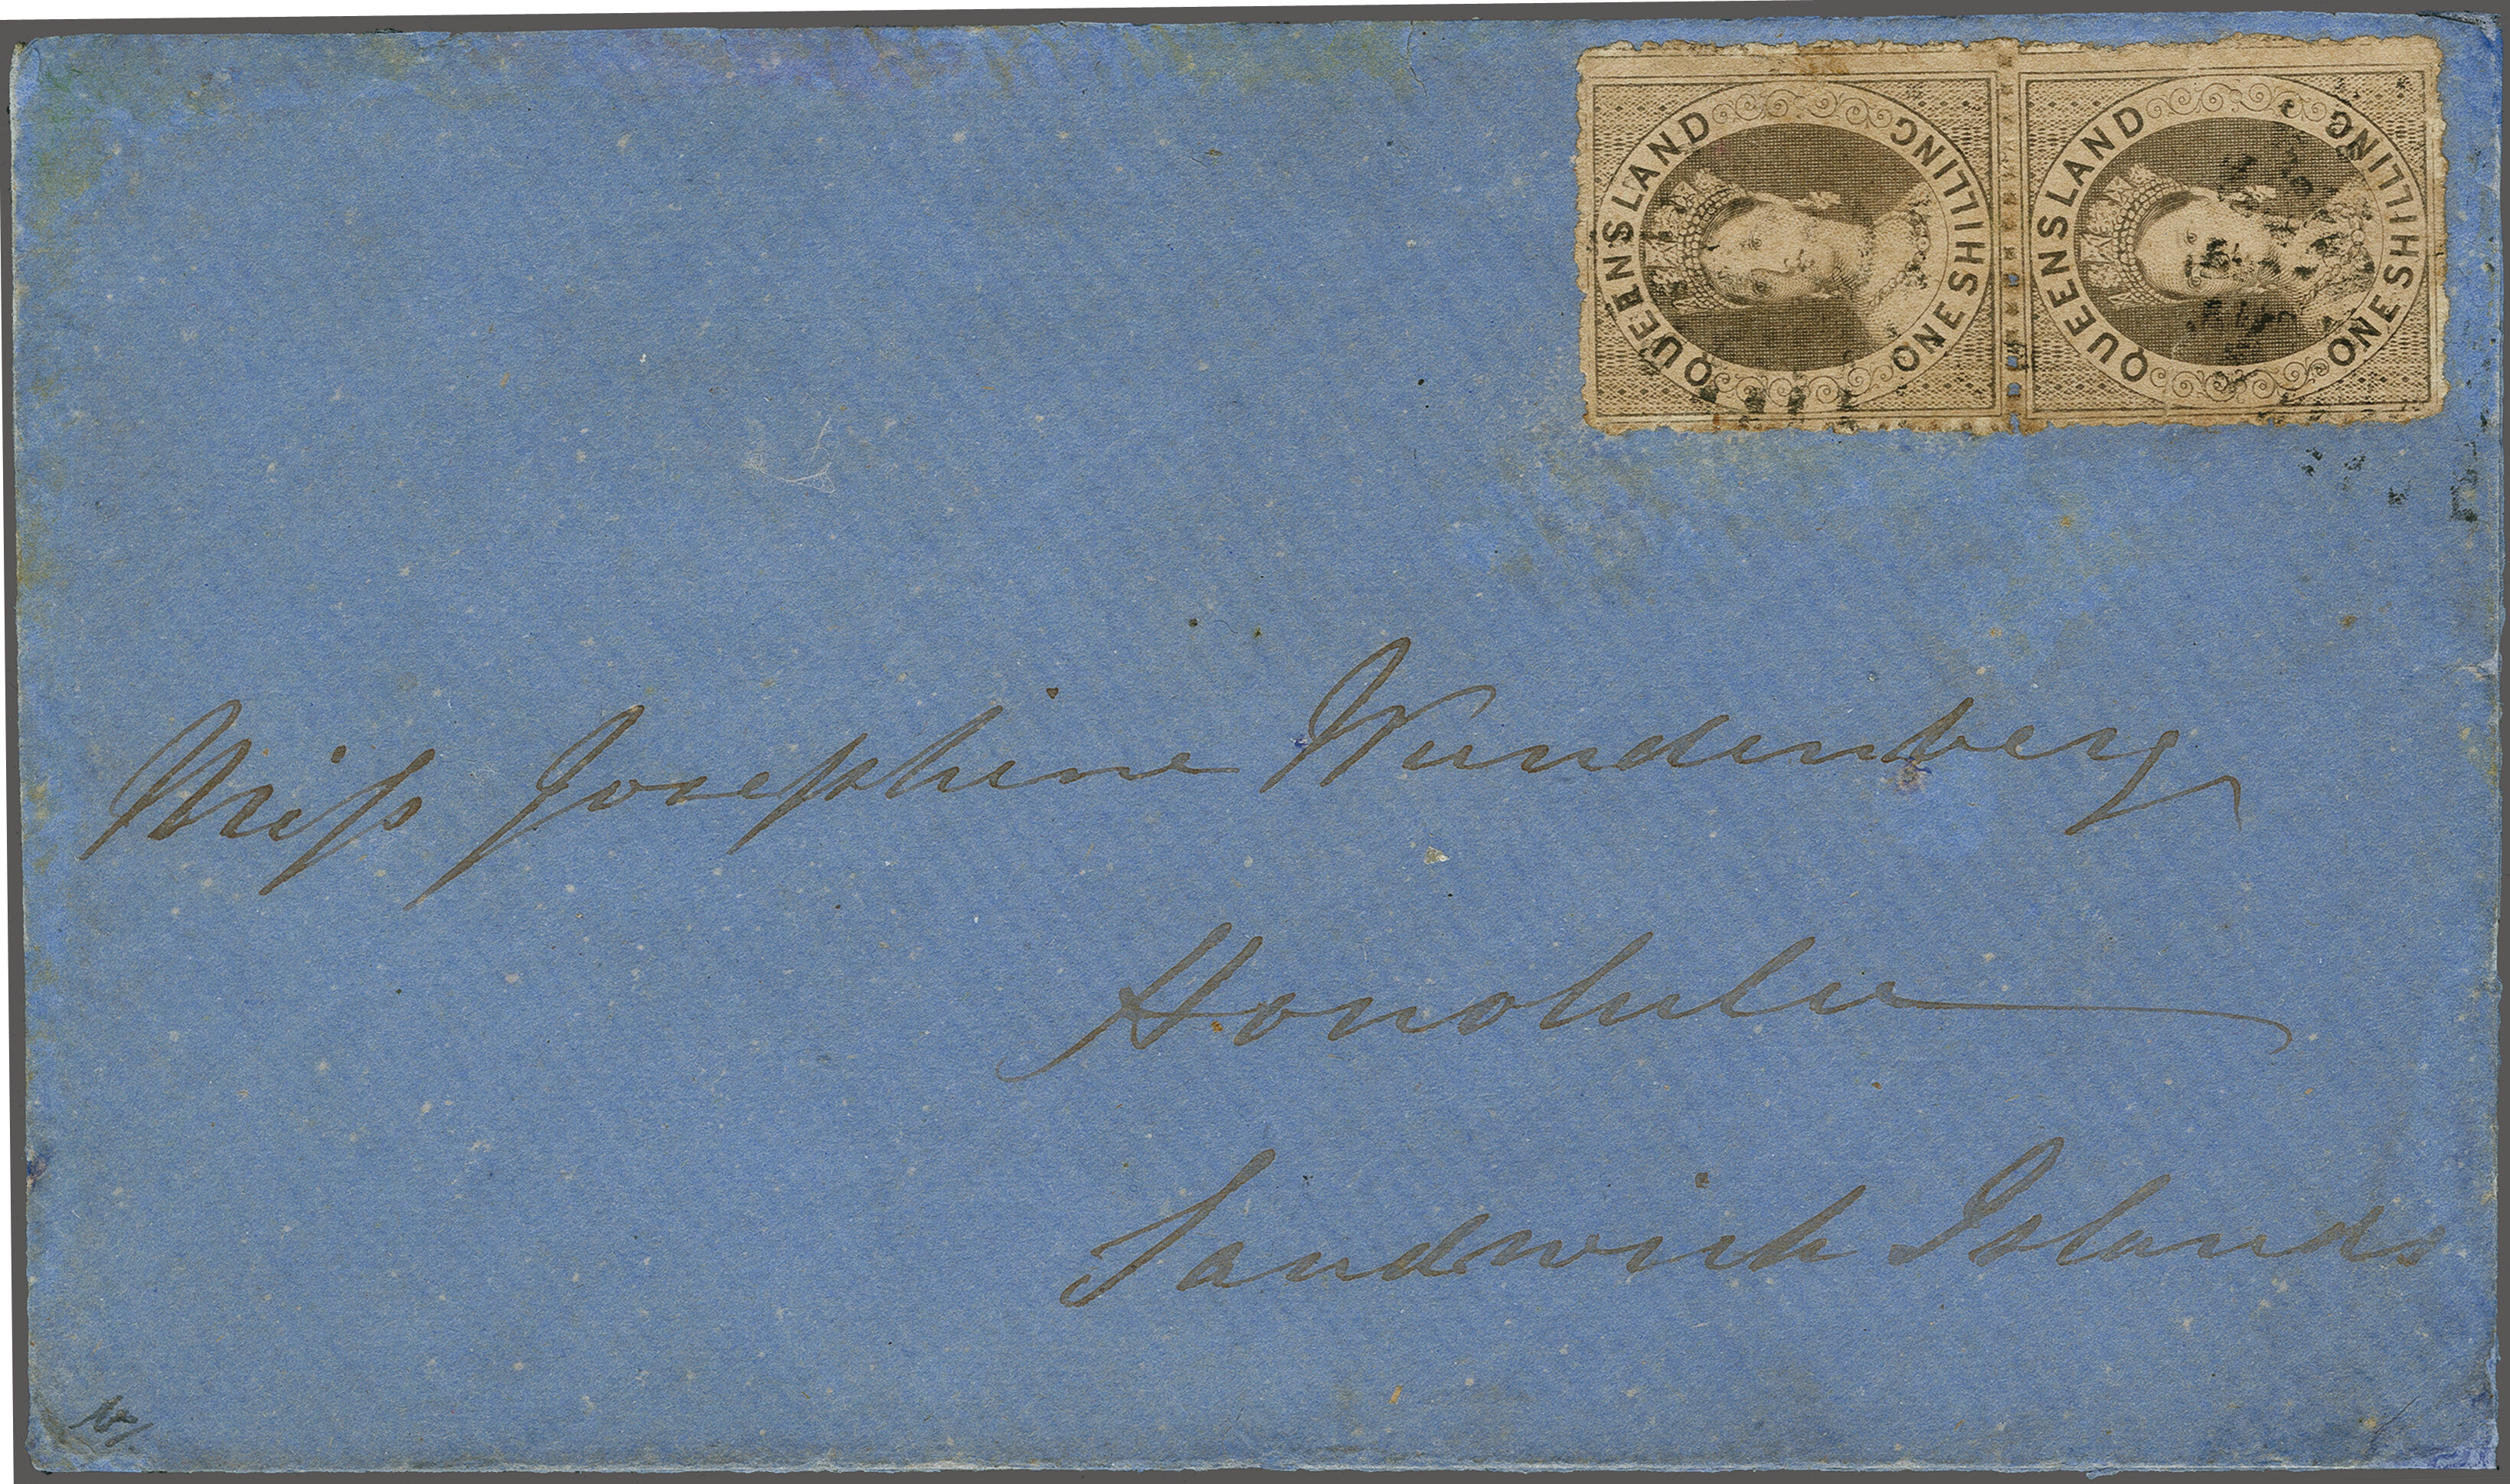 QUEENSLAND ONE SHILLING
QUEENSLAND ONE SHILLING
Miss Josephine Wundenberg
Honolulu
Sandwich Islands